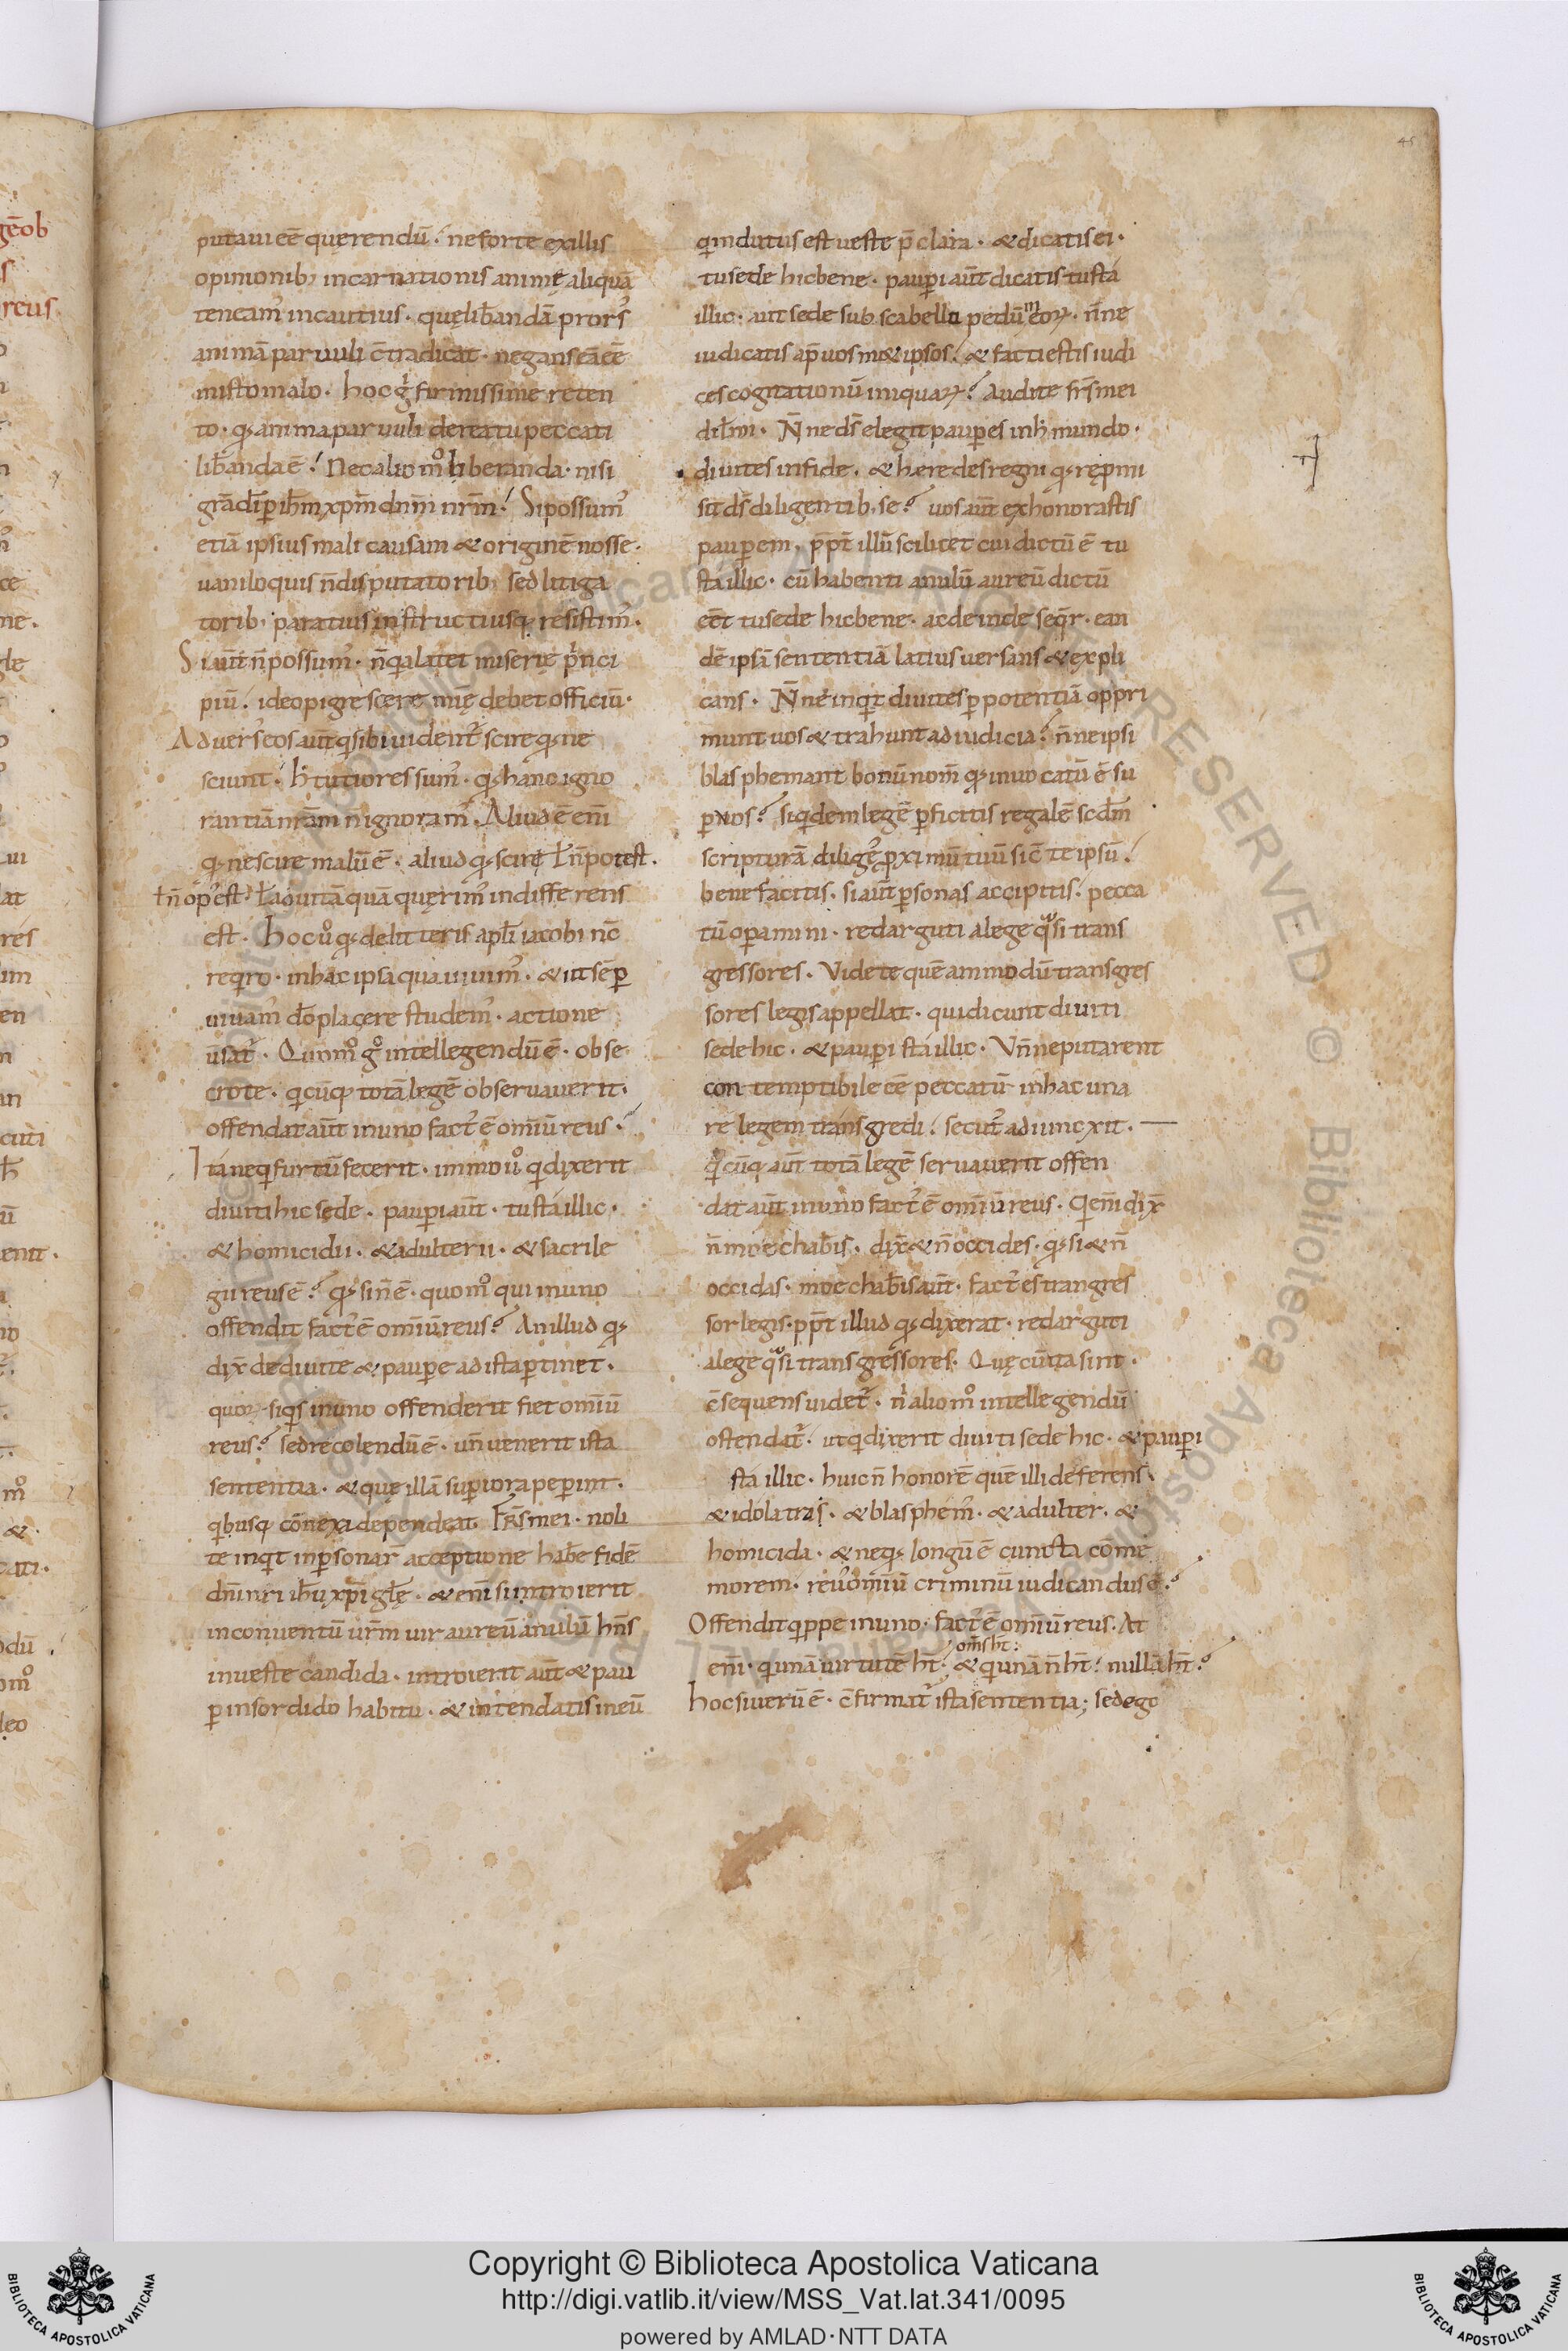 putaui eē quęrendū. ne forte exillis
opinionib; incarnationis animę aliquā
teneam᾽ incautius. quę lib̄andā prors᾽
animā paruuli c̄tradicat. negans eā eē
in isto malo. hoc g̊ firmissime reten
to. qđ anima paruuli dereatu peccati
lib̄anda ē. Nec alio m̊ liberanda. nisi
grā dī ꝑ ihm̄ xpm̄ dnm̄ nrm̄. Si possum᾽
etiā ipsius mali causam & originē nosse.
uaniloquis n̄ disputatorib; sed litiga
torib; paratius instructiusq; resistim᾽.
Si aūt n̄ possum᾽. n̄ q̇a latet miserię princi
piū. ideo pigrescere mię debet officiū.
Aduers᾽ eos aūt q̇ sibi uident᾽ scire qđ ne
sciunt. h̄ tutiores sum᾽. qđ hanc igno
rantiā nrām n̄ ignoram᾽. Aliud ē enī
qđ nescire malū ē. aliud qđ scirę ł n̄ potest.
ł n̄ op᾽ est. ł ad uitā quā quęrim᾽ indifferens
est. hoc ů qđ delitteris apłi iacobi nc̄
req̇ro. in hac ipsa qua uiuim᾽. & ut sēꝑ
uiuam᾽ dō placere studem᾽. actione
uersat᾽. Quom̊ g̊ intellegendū ē. obse
cro te. q̇cūq; totā legē obseruauerit.
offendat aūt in uno fact᾽ ē omiū reus.
Itane q̇ furtū fecerit. immo ů q̇ dixerit
diuiti hic sede. pauꝑi aūt. tu sta illic.
& homicidii. & adulterii. & sacrile
gii reus ē? qđ si n̄ ē. quom̊ qui in uno
offendit fact᾽ ē omiū reus? An illud qđ
dix̄ de diuite & pauꝑe ad ista ꝑtinet.
quoꝝ siq̇s in uno offenderit fiet omiū
reus? sed recolendū ē. un̄ uenerit ista
sententia. & quę illā suꝑiora peꝑint.
q̇busq; cōnexa dependeat. Fr̄s mei. noli
te inq̇t in ꝑsonaꝝ acceptione hab̄e fidē
dnī nrī ihū xpī głę. & enī si introierit
in conuentū urm̄ uir aureū anulū hn̄s
in ueste candida. introierit aūt & pau
ꝑ in sordido habitu. & intendatis in eū
q̇ indutus est ueste p̄clara. & dicatis ei.
tu sede hic bene. pauꝑi aūt dicatis tu sta
illic. aut sede sub scabello pedū meoꝝ. n̄ne
iudicatis ap̄ uosm& ipsos. & facti estis iudi
ces cogitationū iniquaꝝ? Audite fr̄s mei
dil̄mi. N̄ne ds̄ elegit pauꝑes in h̄ mundo.
diuites in fide. & hæredes regni qđ rep̄mi
sit ds̄ diligentib; se? uos aūt exhonorastis
pauꝑem. p̄pt̄ illū scilicet cui dictū ē tu
sta illic. cū habenti anulū aureū dictū
eēt tu sede hic bene. ac deinde seq̇r. ean
dē ipsā sententiā latius uersans & expli
cans. N̄ne inq̇t diuites ꝑ potentiā oppri
munt uos & trahunt ad iudicia. n̄ne ipsi
blasphemant bonū nom̄ qđ inuocatū ē su
per uos? siq̇dem legē ꝑficitis regalē scdm̄
scripturā dilig᾽ ꝓximū tuū sic̄ te ipsū.
bene facitis. si aūt ꝑsonas accipitis. pecca
tū oꝑamini. redarguti a lege q̊si trans
gressores. Videte quēammodū transgres
sores legis appellat. qui dicunt diuiti
sede hic. & pauꝑi sta illic. Vn̄ ne putarent
contemptibile eē peccatū in hac una
re legem transgredi. secut᾽ adiuncxit.
q̇cūq; aūt totā legē seruauerit offen
dat aūt in uno fact᾽ ē omiū reus. Q̇ enī dix̄
n̄ moechab̄is. dix̄ & n̄ occides. qđ si & n̄
occidas. moechab̄is aūt. fact᾽ es trangres
sor legis. ꝓpt̄ illud qđ dixerat. redarguti
a lege q̊si transgressores. Quę cū ita sint.
c̄sequens uidet᾽. n̄ alio m̊ intellegendū
ostendat᾽. ut q̇ dixerit diuiti sede hic. & pauꝑi
sta illic. huic n̄ honorē quē illi deferens.
& idolatris. & blasphem᾽. & adulter. &
homicida. & neqđ longū ē cuncta come
morem. reus omiū criminū iudicandus ē.
Offendit q̇ppe in uno. fact᾽ ē omiū reus. At
om̄s ht̄:
enī. q̇ unā uirtutē ht̄. & q̇ unā n̄ ht̄. nullā ht̄.
hoc si uerū ē. c̄firmat᾽ ista sententia; sed ego
Copyright © Biblioteca Apostolica Vaticana
http://digi.vatlib.it/view/MSS_Vat.lat.341/0095
powered by AMLAD·NTT DATA
BIBLIOTECA APOSTOLICA VATICANA
BIBLIOTECA APOSTOLICA VATICANA